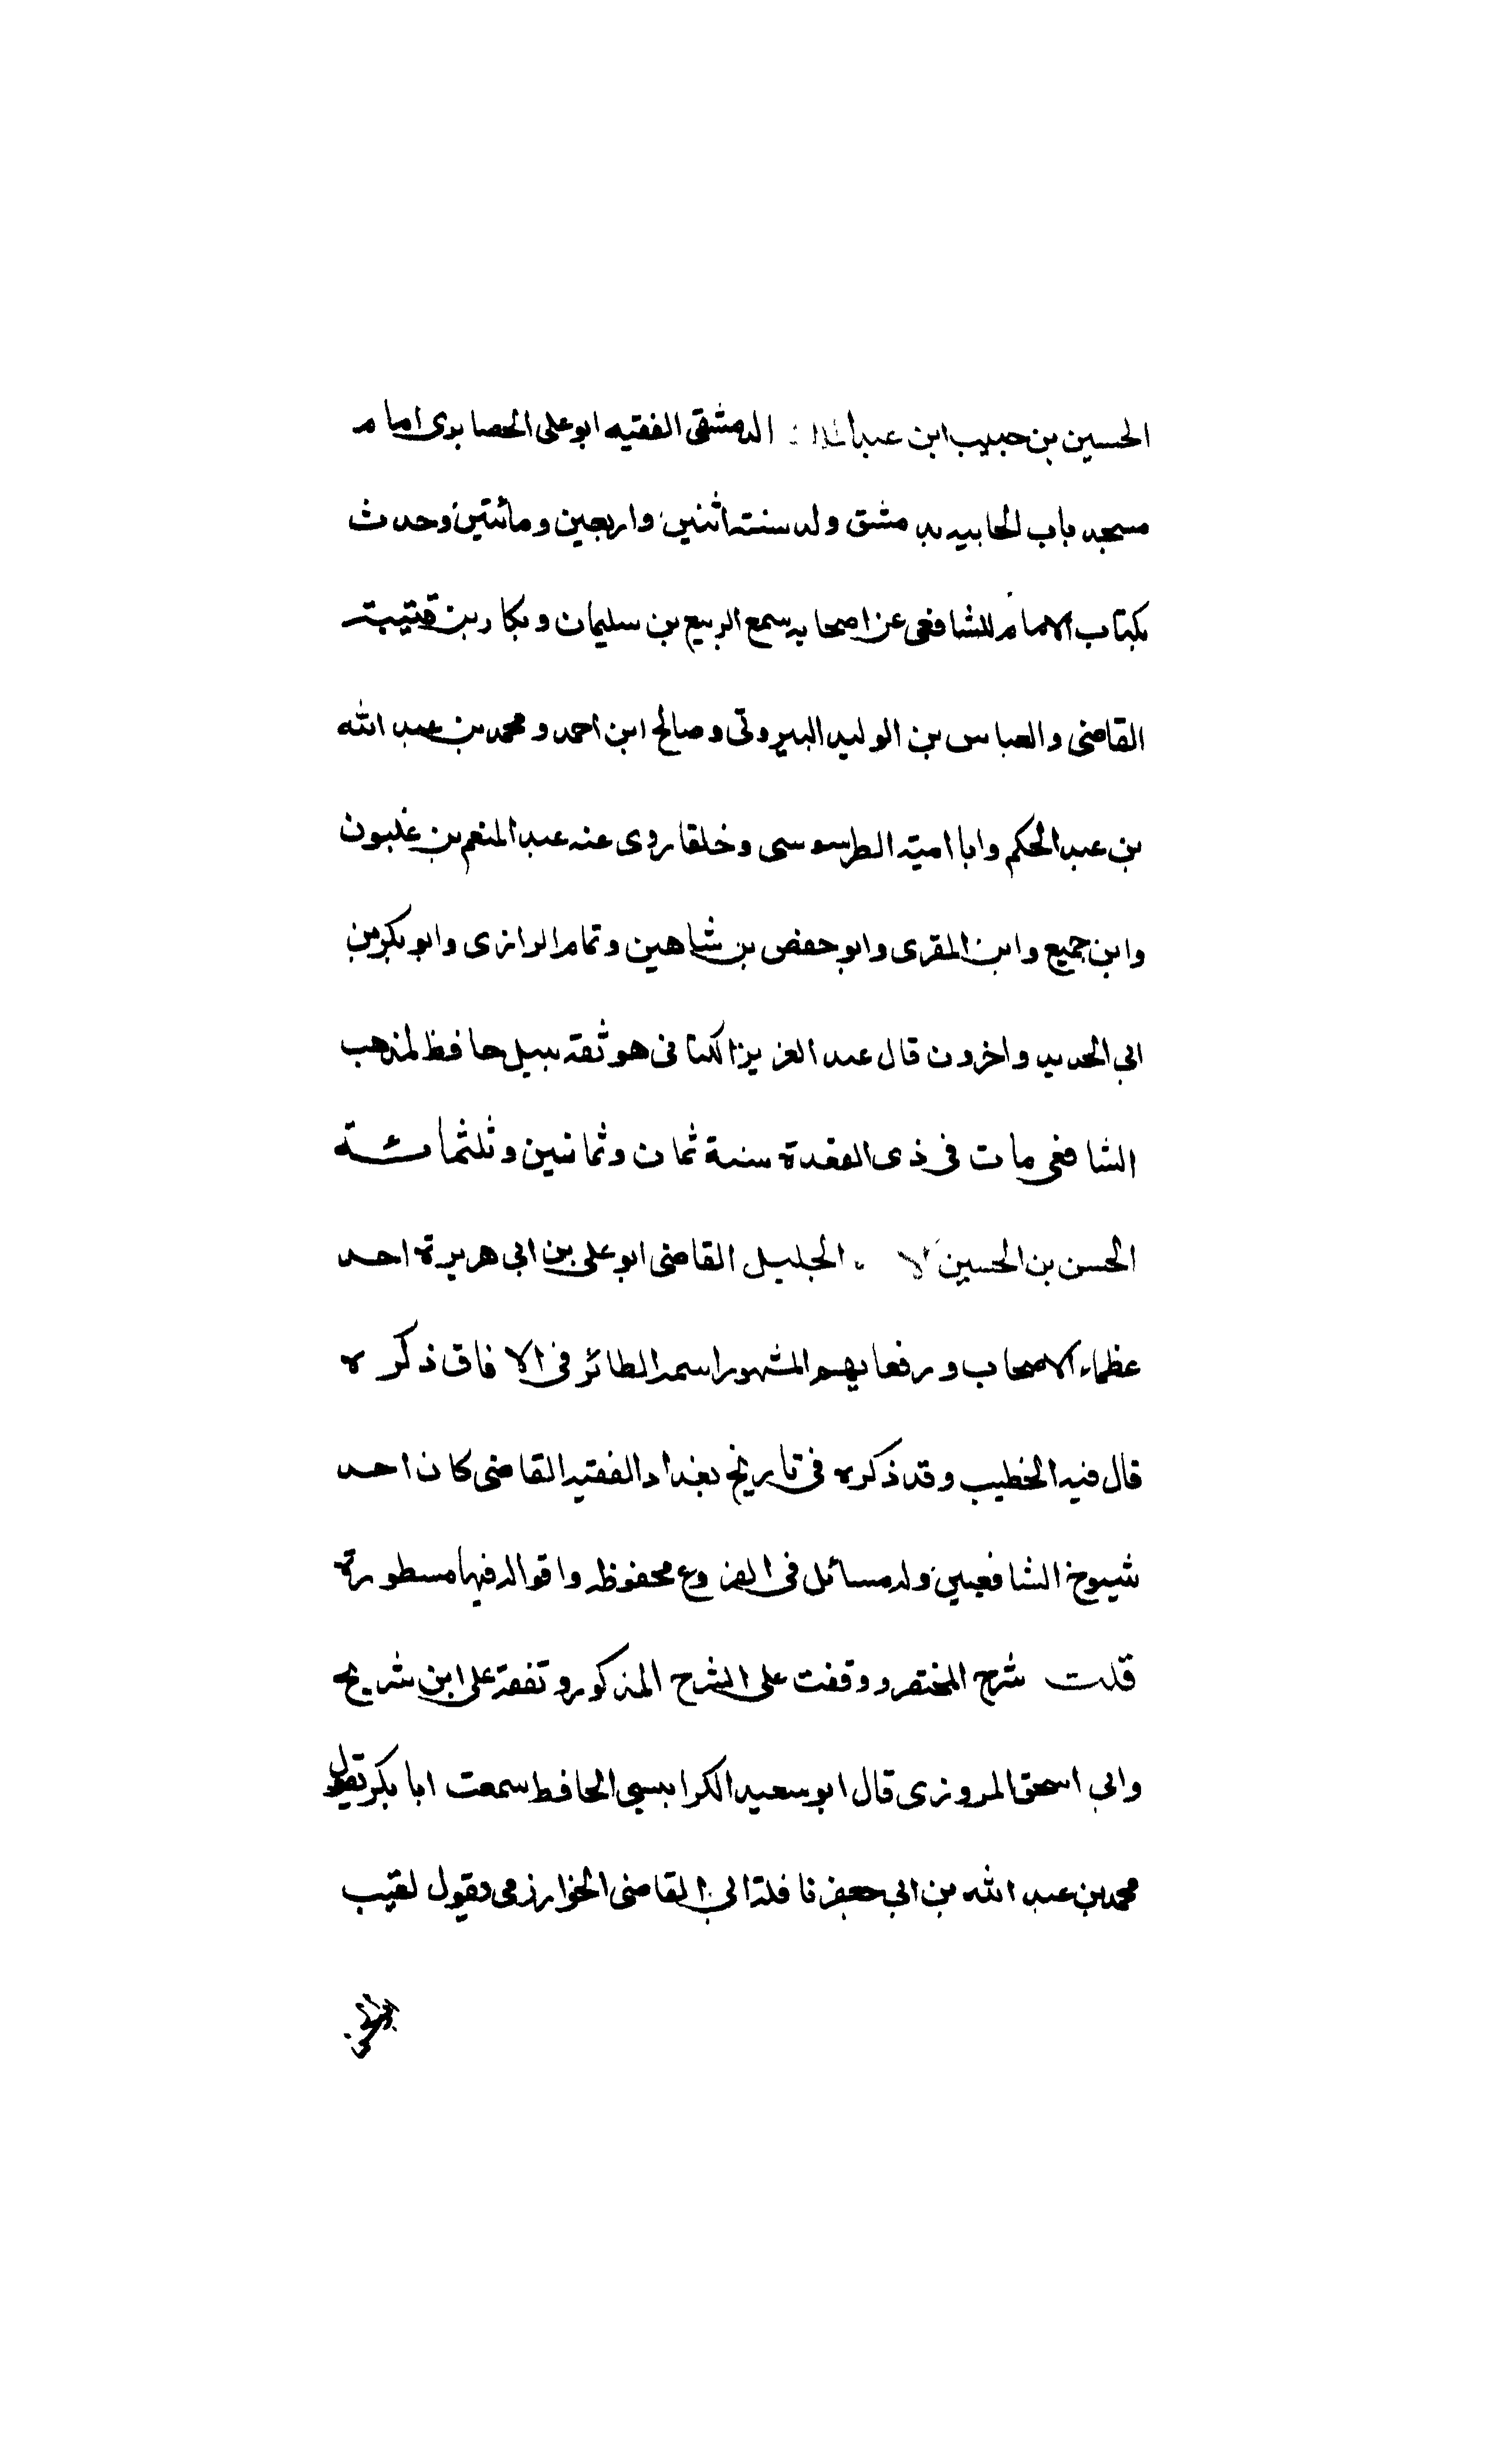 الحسين بن حبيب ابن عبد الملك الدمشقى الفقيه ابو على الحصايرى امام
مسجد باب الجابيه بدمشق ولد سنة اثنين واربعين ومائتين وحدث
بكتاب الامام للشافعى عن اصحابه سمع الربيع بن سليمان وبكار بن قتيبة
القاضى والعباس بن الوليد البيروتى وصالح ابن احمد ومحمد بن عبد الله
بن عبد الحكم وابا امية الطرسوسى وخلقا روى عنه عبد المنعم بن غلبون
وابن جميع وابن المقرى وابو حفص بن شاهين وتمام الرازى وابو بكر بن
ابى الحديد واخرون قال عبد العزيز الكتانى هو ثقة نبيل حافظ لمذهب
الشافعى مات فى ذى القعدة سنة ثمان وثمانين وثلثمائة
الحسن بن الحسين الجليل القاضى ابو على بن ابى هريرة احد
عظماء الاصحاب ورفعايهم المشهور اسمه الطائر فى الافاق ذكره
قال فيه الخطيب وقد ذكره فى تاريخ بغداد الفقيه القاضى كان احد
شيوخ الشافعيين وله مسائل فى الفروع محفوظه واقواله فيها مسطورة
قلت شرح المختصر ووقفت على الشرح المذكور وتفقة على ابن شريح
وابى اسحق المروزى قال ابو سعيد الكرابيسى الحافظ سمعت ابا بكر يقول
محمد بن عبد الله بن ابى جعفر نافلة ابى القاضى الخوارزمى يقول لقيت